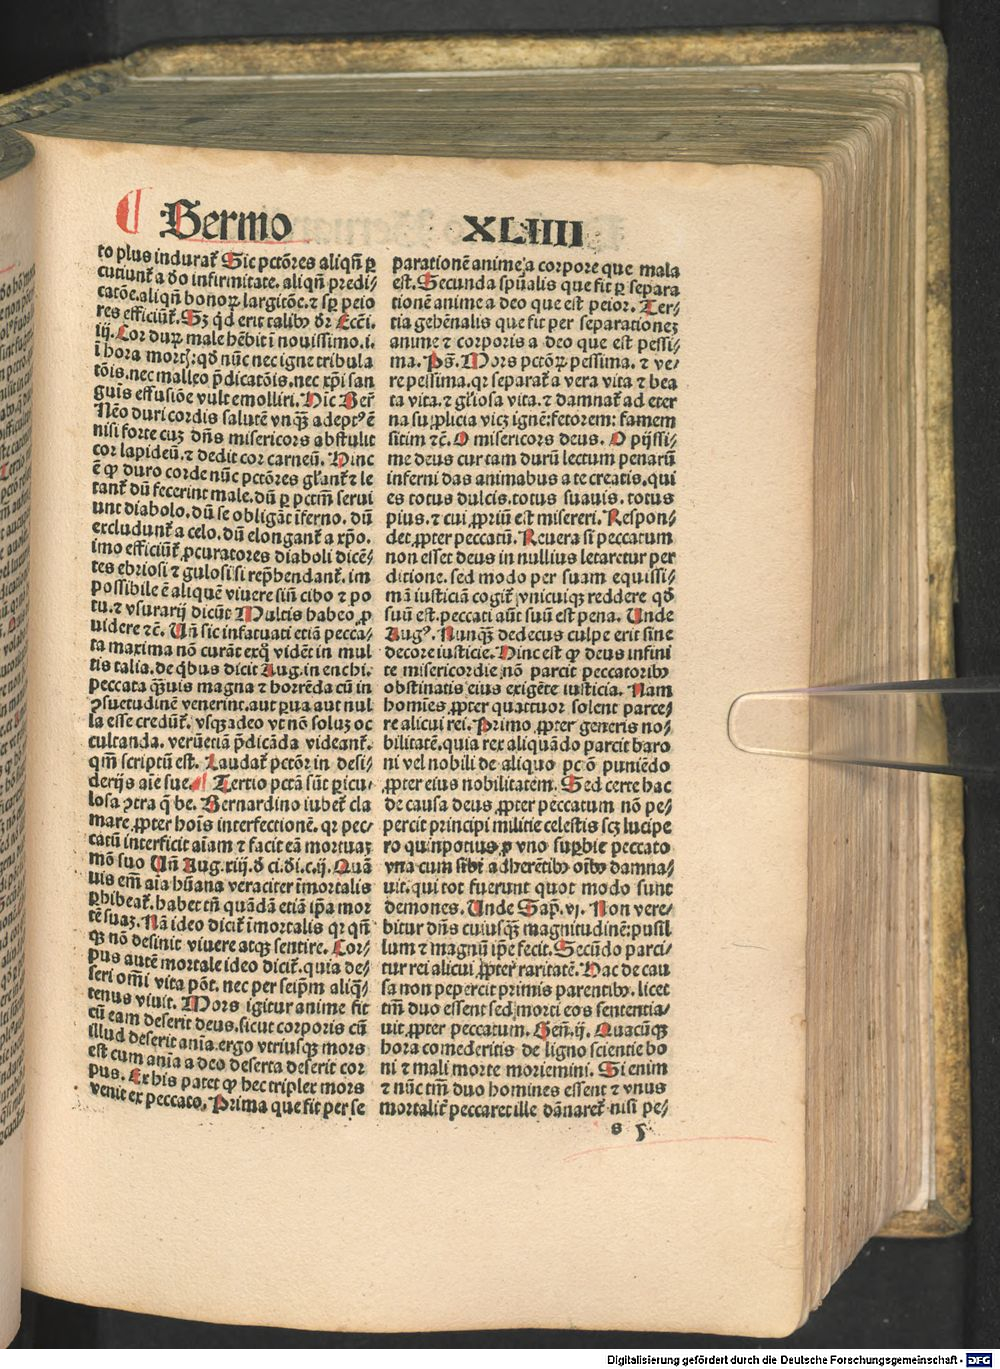 Sermo XLIIII
to plus indurat᷑. Sic pctōres aliqñ ꝑ
cutiunt᷑ a ďo infirmitate. aliqñ predi⸗
catōe. aliqñ bonoꝝ largitōe. ⁊ sꝑ peio
res efficiūt᷑. Sꝫ qď erit talibꝰ ďr Ecc̄i.
iij. Cor duꝝ male hēbit ī nouissimo. i.
ī hora mortꝭ: qď nūc nec igne tribula
tōis. nec malleo p̄dicatōis. nec xp̄i san
guīs effusiōe vult emolliri. Hic Ber̄
Nēo duri cordis salutē vnqꝫ adeptꝰ ē
nisi forte cuꝫ dn̄s misericors abstulit
cor lapideū. ⁊ dedit cor carneū. Hinc
ē ꝙ duro corde nūc pctōres gl̄ant᷑ ⁊ le
tant᷑ dū fecerint male. dū ꝑ pctm̄ serui
unt diabolo. dū se obligāt īferno. dū
excludunt᷑ a celo. dū elongant᷑ a xp̄o.
imo efficiūt᷑ ꝓcuratores diaboli dicē⸗
tes ebriosi ⁊ gulosi si rep̄hendant᷑. im
possibile ē aliquē viuere sin̄ cibo ⁊ po
tu. ⁊ vsurarij dicūt Multis habeo ꝓ
uidere ⁊c̄. Vn̄ sic infatuati etiā pecca⸗
ta maxima nō curāt exꝙ vidēt in mul
tis talia. de qͥbus dicit Aug. in enchi.
Peccata qꝫuis magna ⁊ horrēda cū in
ꝯsuetudinē venerint. aut ꝑua aut nul
la esse credūt᷑. vsqꝫ adeo vt nō soluꝫ oc
cultanda. verūetiā p̄dicāda videant᷑.
qm̄ scriptū est. Laudat᷑ pctōr in desi⸗
derijs aīe sue. Tertio pctā sūt ꝑicu⸗
losa ꝯtra q̄ be. Bernardino iubet᷑ cla
mare ꝓpter hoīs interfectionē. qꝛ pec⸗
catū interficit aīam ⁊ facit eā mortuaꝫ
mō suo Vn̄ Aug. xiij. ď ci. ďi. c. ij. Quā
uis em̄ aīa hūana veraciter īmortalis
ꝑhibeat᷑. habet tn̄ quādā etiā ip̄a mor
tē suaꝫ. Nā ideo dicit᷑ īmortalis qꝛ qn̄
qꝫ nō desinit viuere atqꝫ sentire. Cor⸗
pus autē mortale ideo dicit᷑. quia de⸗
seri om̄i vita pōt. nec per seip̄m aliqͣ⸗
tenus viuit. Mors igitur anime fit
cū eam deserit deus. sicut corporis cū
illud deserit anīa. ergo vtriusqꝫ mors
est cum anīa a deo deserta deserit cor
pus. Ex his patet ꝙ hec triplex mors
venit ex peccato. Prima que fit per se
parationē anime a corpore que mala
est. Secunda sp̄ualis que fit ꝑ separa
tionē anime a deo que est peior. Ter⸗
tia gehēnalis que fit per separationeꝫ
anime ⁊ corporis a deo que est pessi⸗
ma. Ps̄. Mors pctōꝝ pessima. ⁊ ve⸗
re pessima. qꝛ separat᷑ a vera vita ⁊ bea
ta vita. ⁊ gl̄iosa vita. ⁊ damnat᷑ ad eter
na supplicia vicꝫ ignē: fetorem: famem
sitim ⁊c̄. O misericors deus. O pijssi⸗
me deus cur tam durū lectum penarū
inferni das animabus a te creatis. qui
es totus dulcis. totus suauis. totus
pius. ⁊ cui ꝓpriū est misereri. Respon⸗
det. ꝓpter peccatū. Reuera si peccatum
non esset deus in nullius letaretur per
ditione. sed modo per suam equissi⸗
mā iusticiā cogit᷑ vnicuiqꝫ reddere qď
suū est. peccati aūt suū est pena. Unde
Augꝰ. Nunqꝫ dedecus culpe erit sine
decore iusticie. Hinc est ꝙ deus infini
te misericordie nō parcit peccatoribꝰ
obstinatis eius exigēte iusticia. Nam
homies ꝓpter quattuor solent parce⸗
re alicui rei. Primo ꝓpter generis no⸗
bilitatē. quia rex aliquādo parcit baro
ni vel nobili de aliquo pctō puniēdo
ꝓpter eius nobilitatem. Sed certe hac
de causa deus ꝓpter peccatum nō pe⸗
percit principi militie celestis scꝫ lucipe
ro quinpotius ꝓ vno suꝑbie peccato
vna cum sibi adherētibꝰ oībꝰ damna⸗
uit. qui tot fuerunt quot modo sunt
demones. Unde Sap̄. vj. Non vere⸗
bitur dn̄s cuiusqꝫ magnitudinē: pusil
lum ⁊ magnū ip̄e fecit. Secūdo parci⸗
tur rei alicui ꝓpter raritatē. Hac de cau
sa non pepercit primis parentibꝰ. licet
tm̄ duo essent sed morti eos sententia⸗
uit ꝓpter peccatum. Gen̄. ij. Quacūqꝫ
hora comederitis de ligno scientie bo
ni ⁊ mali morte moriemini. Si enim
⁊ nūc tm̄ duo homines essent ⁊ vnus
mortalit᷑ peccaret ille dānaret᷑ nisi pe⸗
s 5
Digitalisierung gefördert durch die Deutsche Forschungsgemeinschaft - DFG